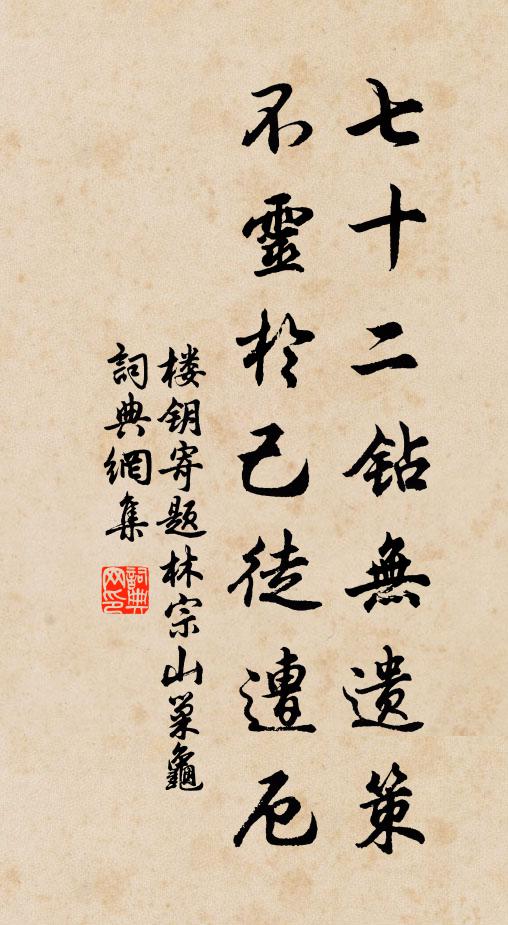 七十二鉆無遗策
不靈於己徒遭厄
楼钥寄题林宗山巢龜
詞典網集
詞典
网印